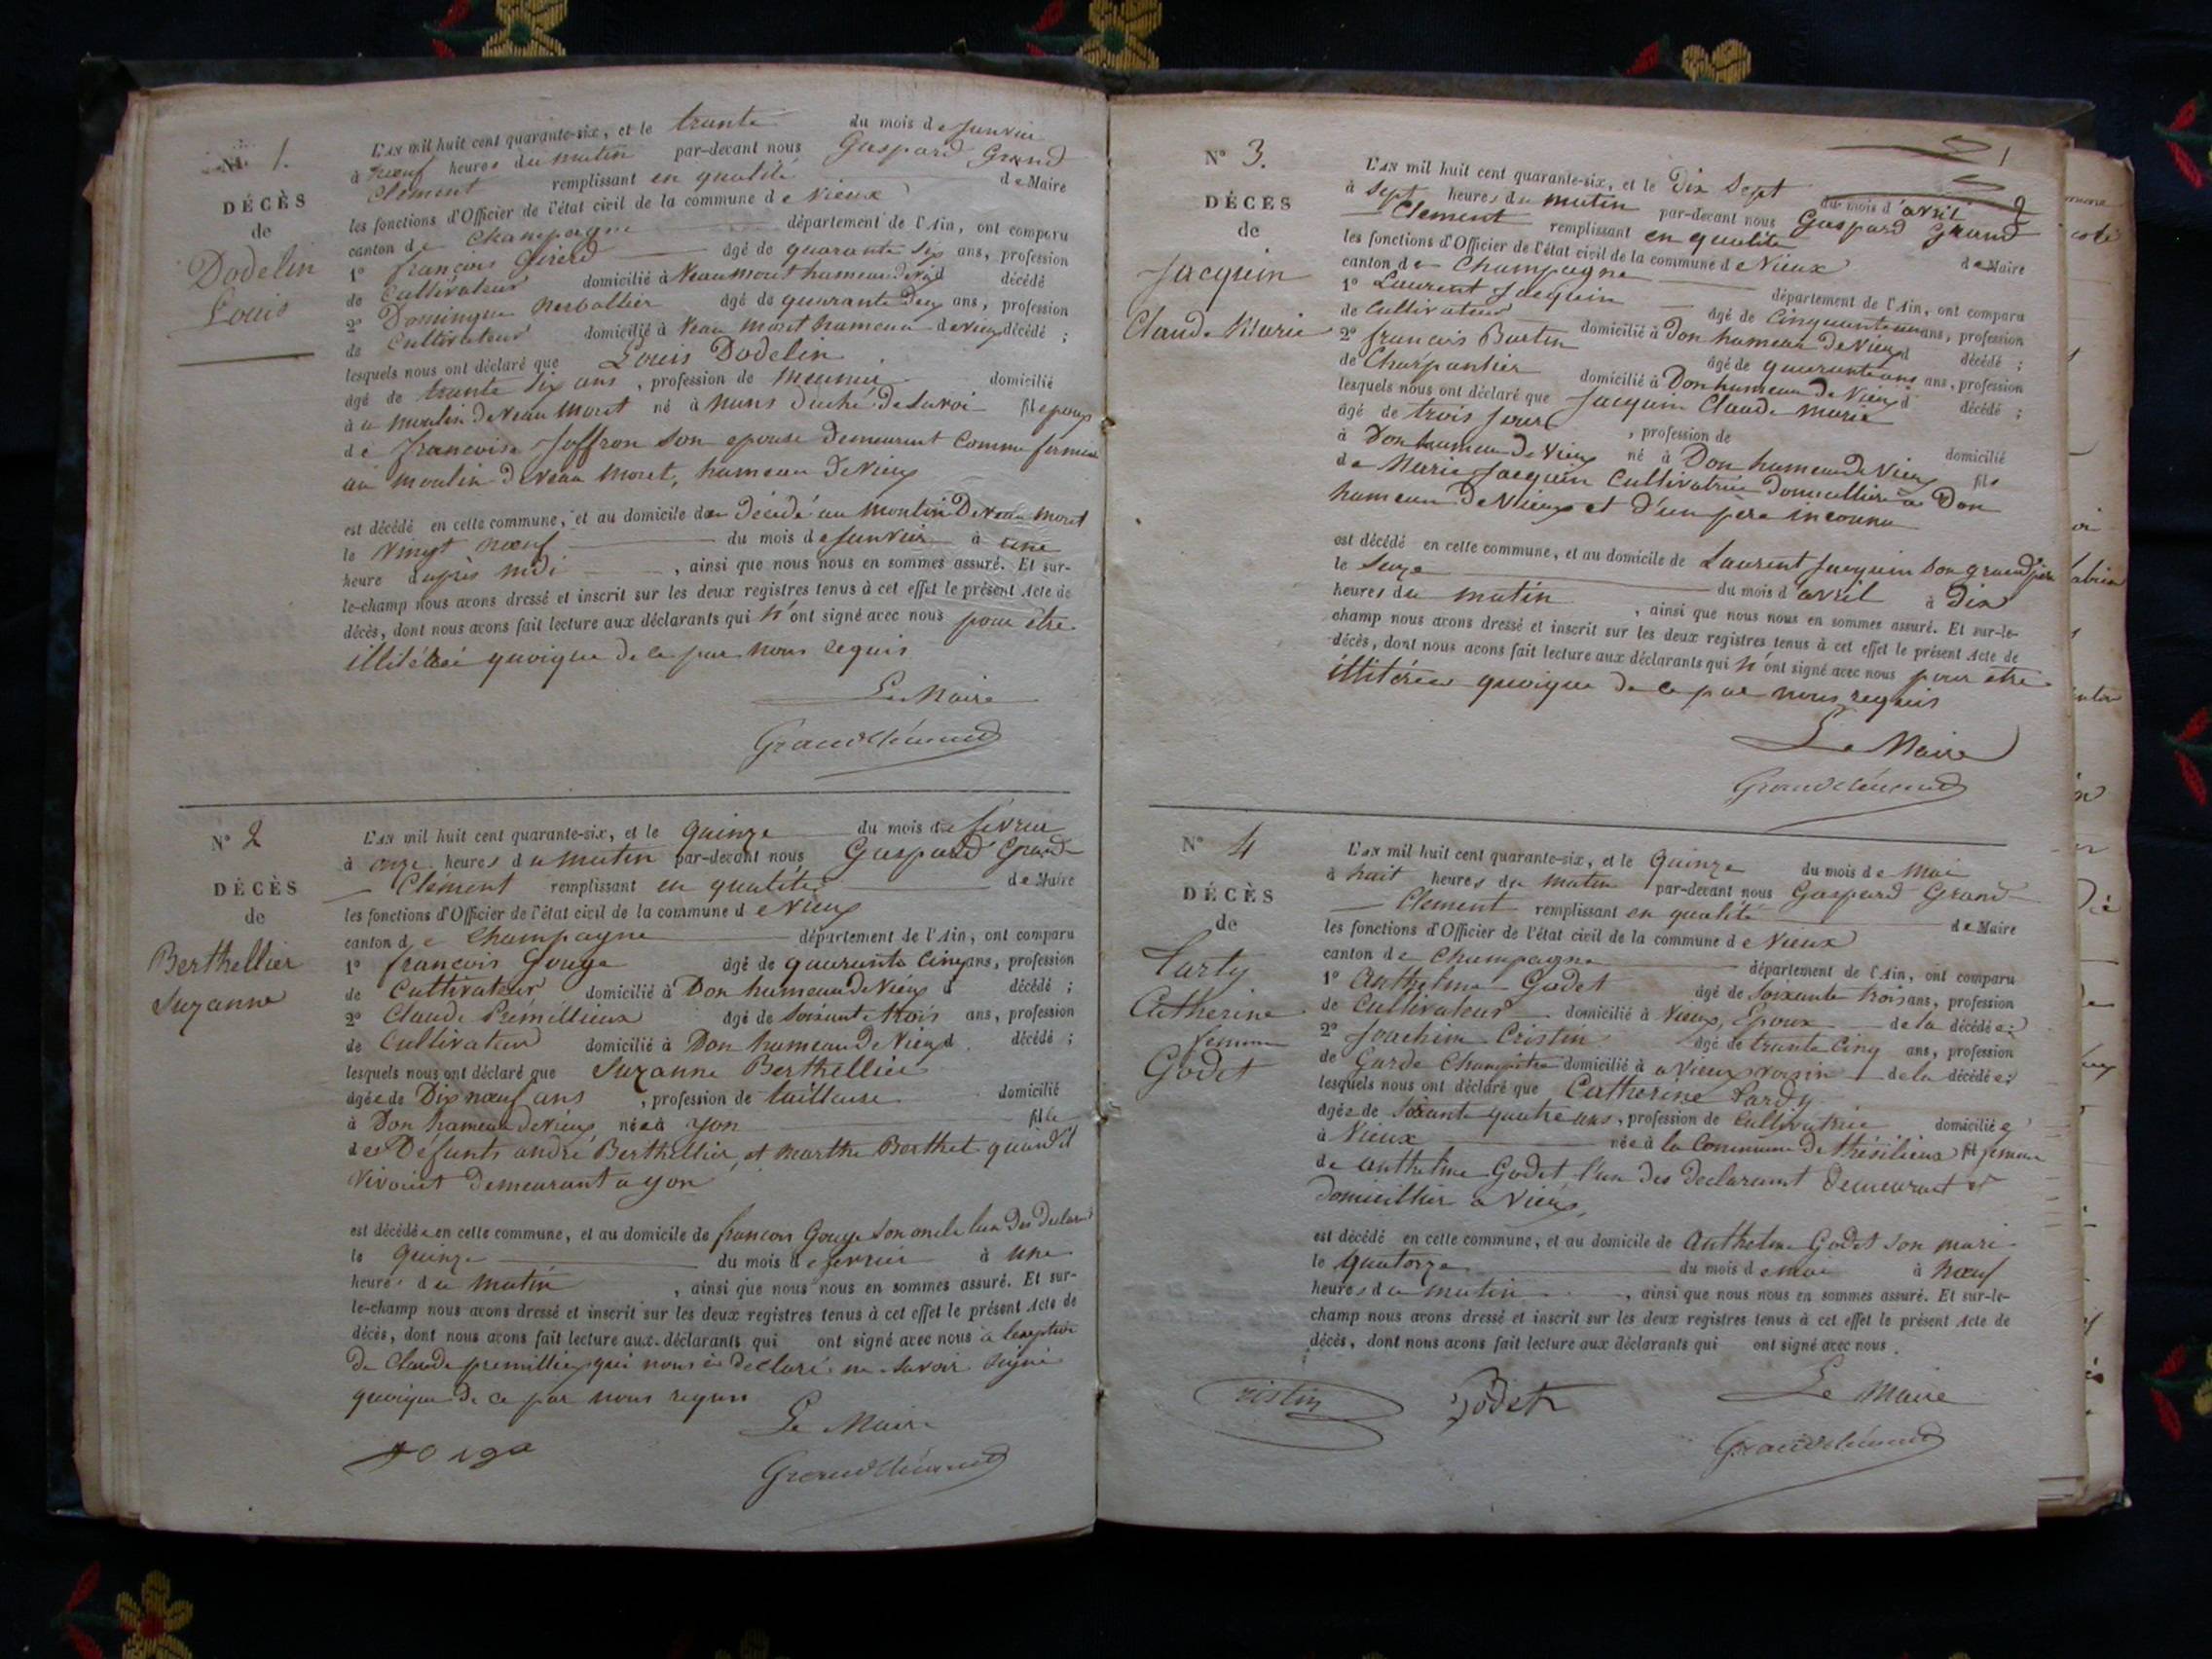 N° 1.
DÉCÈS
de
Dodelin
Louis
L'AN mil huit cent quarante-six, et le trente du mois de Janvier
à nœuf heures du matin par-devant nous Gaspard Grand
Clément remplissant en qualité de Maire
les fonctions d'Officier de l'état civil de la commune de Vieux
canton de Champagne département de l'Ain, ont comparu
1° françois Girerd âgé de quarante six ans, profession
de Cultivateur domicilié à Veau moret hameau de décédé
2° Dominque âgé de quarante deux ans, profession
de Cultivateur domicilié à Veau moret hameau de vieux décédé ;
lesquels nous ont déclaré que Louis Dodelin
âgé de trante six ans, profession de Meunier domicilié
à moulin de Veau moret né à duché de Savoi fils epoux
de francoise Joffron Son epouse demeurent Comme fermier
au moulin de veau moret, hameau de Vieux
est décédé en cette commune, et au domicile du décédé au moulin De veau moret
le vingt nœuf du mois de Janvier à une
heure d'après midi, ainsi que nous nous en sommes assuré. Et sur-
le-champ nous avons dressé et inscrit sur les deux registres tenus à cet effet le présent Acte de
décès, dont nous avons fait lecture aux déclarants qui n'ont signé avec nous pour être
quoique de ce par nous requis
Le Maire
Grandclément
N° 2
DÉCÈS
de
Berthellier
Suzanne
L'AN mil huit cent quarante-six, et le quinze du mois de fevrier
à onze heures du matin par-devant nous Gaspard Grand
Clément remplissant en qualité de Maire
les fonctions d'Officier de l'état civil de la commune de Vieux
canton de Champagne département de l'Ain, ont comparu
1° francois Gouge âgé de quarante Cinq ans, profession
de Cultivateur domicilié à Don hameau de Vieux d décédé ;
2° Claude Prémillieux âgé de soixante trois ans, profession
de Cultivateur domicilié à Don hameau De Vieux d décédé ;
lesquels nous ont déclaré que Suzanne Berthellier
âgée de Dix nœuf ans, profession de tailleuse domicilié
à Don hameau de Vieux née à yon fille
des Défunts andré Berthellier, et marthe Berthet quand il
vivoint demeurant a yon
est décédée en cette commune, et au domicile de francois Gouge son oncle lun des
le quinze du mois de fevrier à une
heures du matin, ainsi que nous nous en sommes assuré. Et sur-
le-champ nous avons dressé et inscrit sur les deux registres tenus à cet effet le présent Acte de
décès, dont nous avons fait lecture aux déclarants qui ont signé avec nous à
De Claude premillieux qui nous à declaré ne savoir signé
quoique de ce par nous requis
Le Maire
Grandclément
N° 3.
DÉCÈS
de
Jacquin
Claude Marie
L'AN mil huit cent quarante-six, et le dix Sept du mois d'avril
à sept heures du matin par-devant nous Gaspard Grand
Clement remplissant en qualité de Maire
les fonctions d'Officier de l'état civil de la commune de Vieux
canton de Champagne département de l'Ain, ont comparu
1° Laurent Jacquin âgé de Cinquante ans, profession
de Cultivateur domicilié à Don hameau De Vieux d décédé ;
2° francois Burtin âgé de quarante ans ans, profession
de Charpantier domicilié à Don hameau de Vieux d décédé ;
lesquels nous ont déclaré que Jacquin Claude marie
âgé de trois jours, profession de domicilié
à Don hameau De Vieux né à Don hameau de Vieux fils
de Marie Jacquin Cultivatrice Domicillière à Don
hameau De Vieux et d'un père inconnu
est décédé en cette commune, et au domicile de Laurent Jacquin son grand père
le Seize du mois d'avril à Dix
heures du matin, ainsi que nous nous en sommes assuré. Et sur-le-
champ nous avons dressé et inscrit sur les deux registres tenus à cet effet le présent Acte de
décès, dont nous avons fait lecture aux déclarants qui n'ont signé avec nous pour être
quoique de ce par nous requis
Le Maire
Grandclément
N° 4
DÉCÈS
de
Lardy
Catherine
femme
Godet
L'AN mil huit cent quarante-six, et le quinze du mois de Mai
à huit heures du matin par-devant nous Gaspard Grand
Clement remplissant en qualité de Maire
les fonctions d'Officier de l'état civil de la commune de Vieux
canton de Champagne département de l'Ain, ont comparu
1° Anthelme Godet âgé de soixante trois ans, profession
de Cultivateur domicilié à Vieux, Epoux de la décédée ;
2° Joachim Cristin âgé de trante Cinq ans, profession
de Garde Champêtre domicilié à a Vieux voisin de la décédée ;
lesquels nous ont déclaré que Catherine Lardy
âgée de soixante quatre ans, profession de Cultivatrice domiciliée
à Vieux née à la Commune De thésilieux fil femme
de anthelme Godet l'un des declarant Demeurant et
domicillier a Vieux,
est décédé en cette commune, et au domicile de Anthelme Godet son mari
le quatorze du mois de mai à nœuf
heures du matin, ainsi que nous nous en sommes assuré. Et sur-le-
champ nous avons dressé et inscrit sur les deux registres tenus à cet effet le présent Acte de
décès, dont nous avons fait lecture aux déclarants qui ont signé avec nous.
Cristin Godet Le Maire
Grandclément